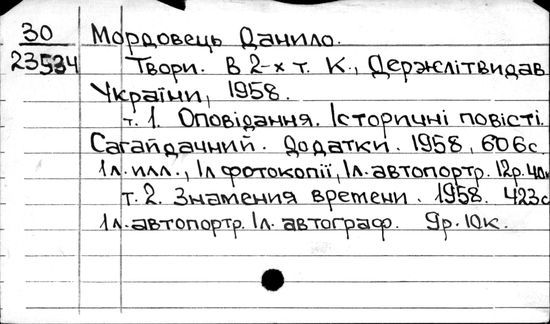 30 Мордовець Данило.
23534 Твори. В 2-х т. К., Держлітвидав
України, 1958.
т. 1. Оповідання. Історичні повісті.
Сагайдачний. Додатки. 1958, 606с.
1л.илл., 1л фотокопії, 1л. автопортр. 12р.40к
т. 2. Знамения времени. 1958. 423с
1л. автопортр. 1л. автограф. 9р.10к.